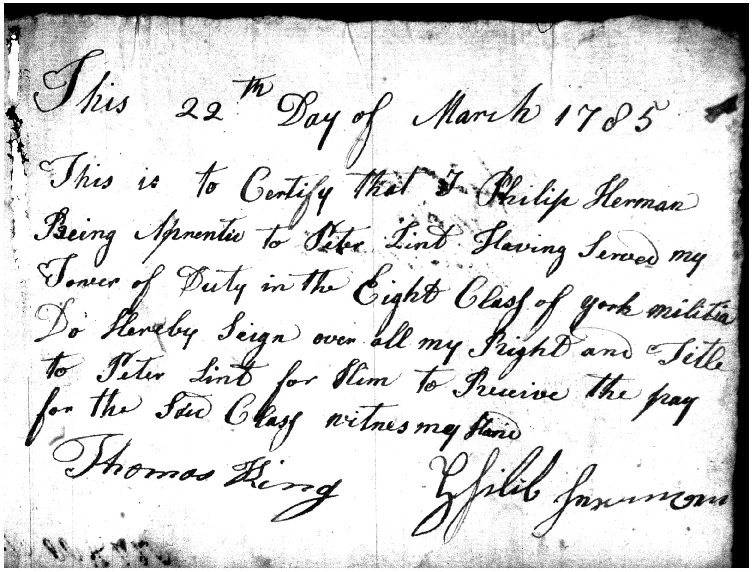 This 22th Day of March 1785
This is to Certify that I Philip Herman
Being Aprentis to Peter Lint Having Served my
Tower of Duty in the Eight Class of york militia
Do Hereby Seign over all my Right and Title
to Peter Lint for Him to Receive the pay
for the Sd Class witnes my Hand
Thomas King
Philib